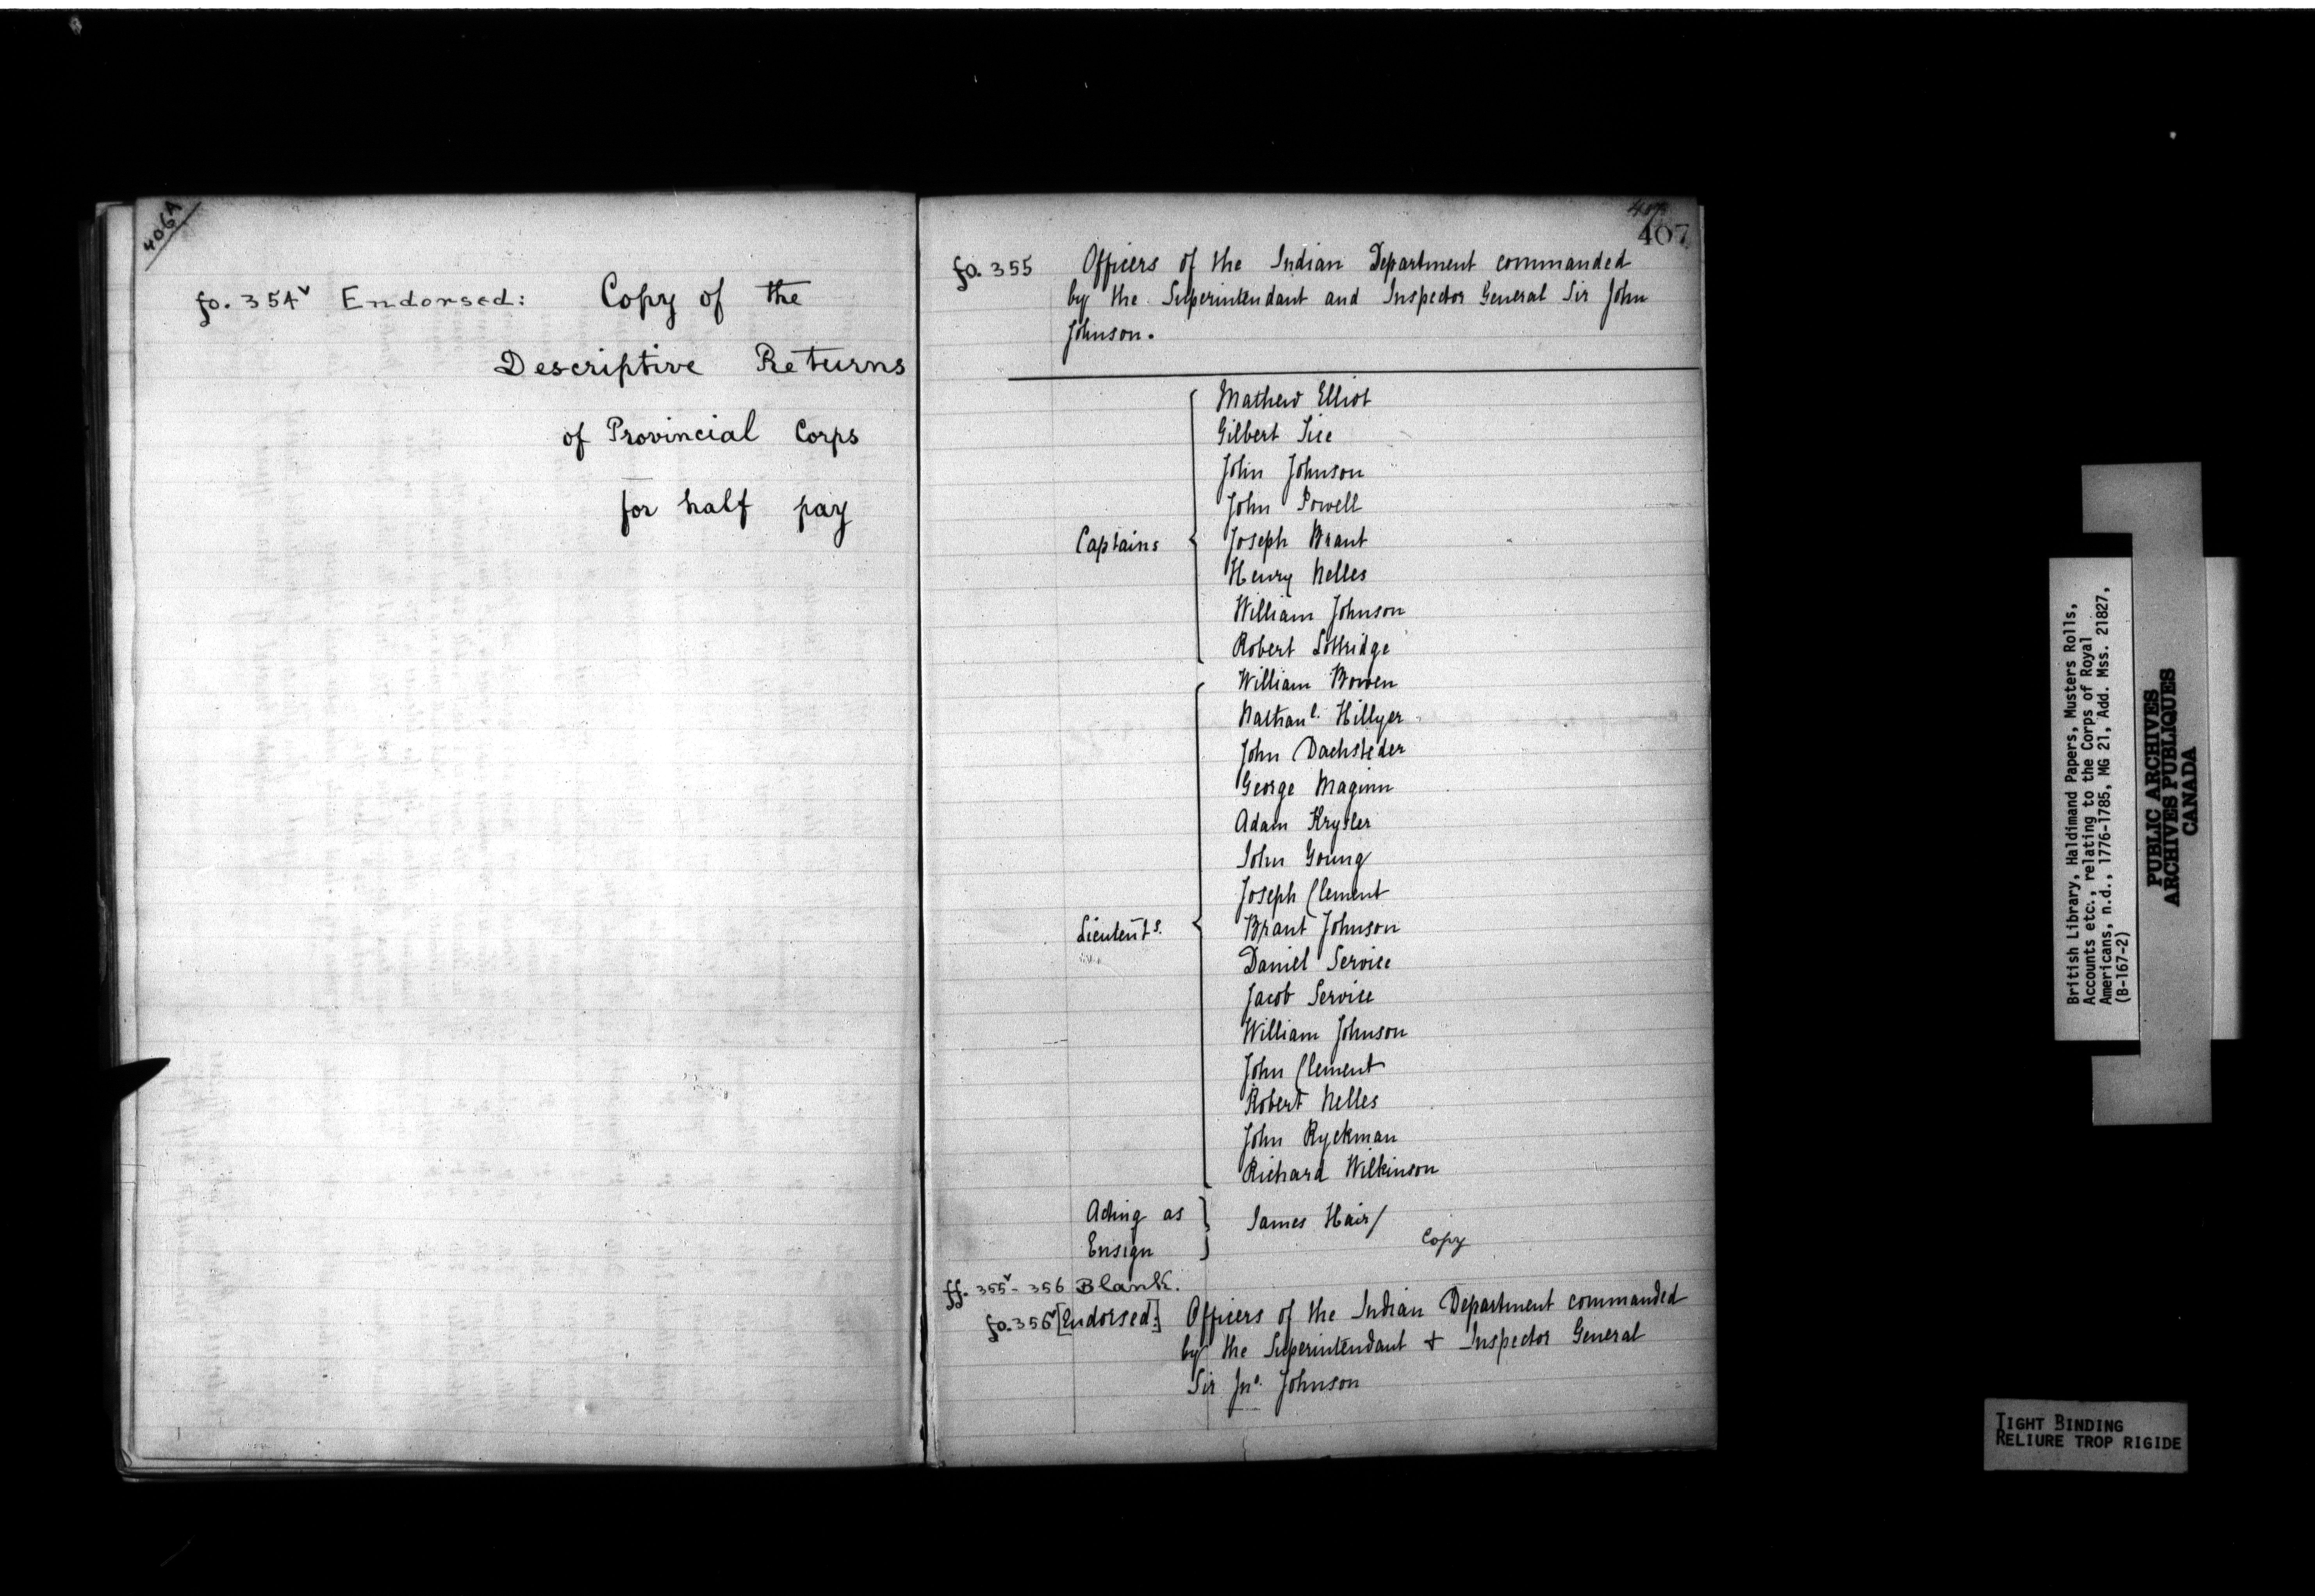 406A
fo. 354v Endorsed: Copy of the
Descriptive Returns
of Provincial Corps
for half pay
407
fo. 355 Officers of the Indian Department commanded
by the Superintendant and Inspector General Sir John
Johnson.
Captains
Mathew Elliot
Gilbert Tice
John Johnson
John Powell
Joseph Brant
Henry Nelles
William Johnson
Robert Lottridge
Lieutents.
William Bowen
Nathanl. Hillyer
John Dachsteder
George Maginn
Adam Krysler
John Young
Joseph Clement
Brant Johnson
Daniel Servise
Jacob Servise
William Johnson
John Clement
Robert Nelles
John Ryckman
Richard Wilkinson
Acting as
Ensign
James Hair/
Copy
ff. 355v - 356 Blank.
fo. 356v [Endorsed:] Officers of the Indian Department commanded
by the Superintendant & Inspector General
Sir Jno. Johnson
British Library, Haldimand Papers, Musters Rolls,
Accounts etc., relating to the Corps of Royal
Americans, n.d., 1776-1785, MG 21, Add. Mss. 21827,
(B-167-2)
PUBLIC ARCHIVES
ARCHIVES PUBLIQUES
CANADA
TIGHT BINDING
RELIURE TROP RIGIDE